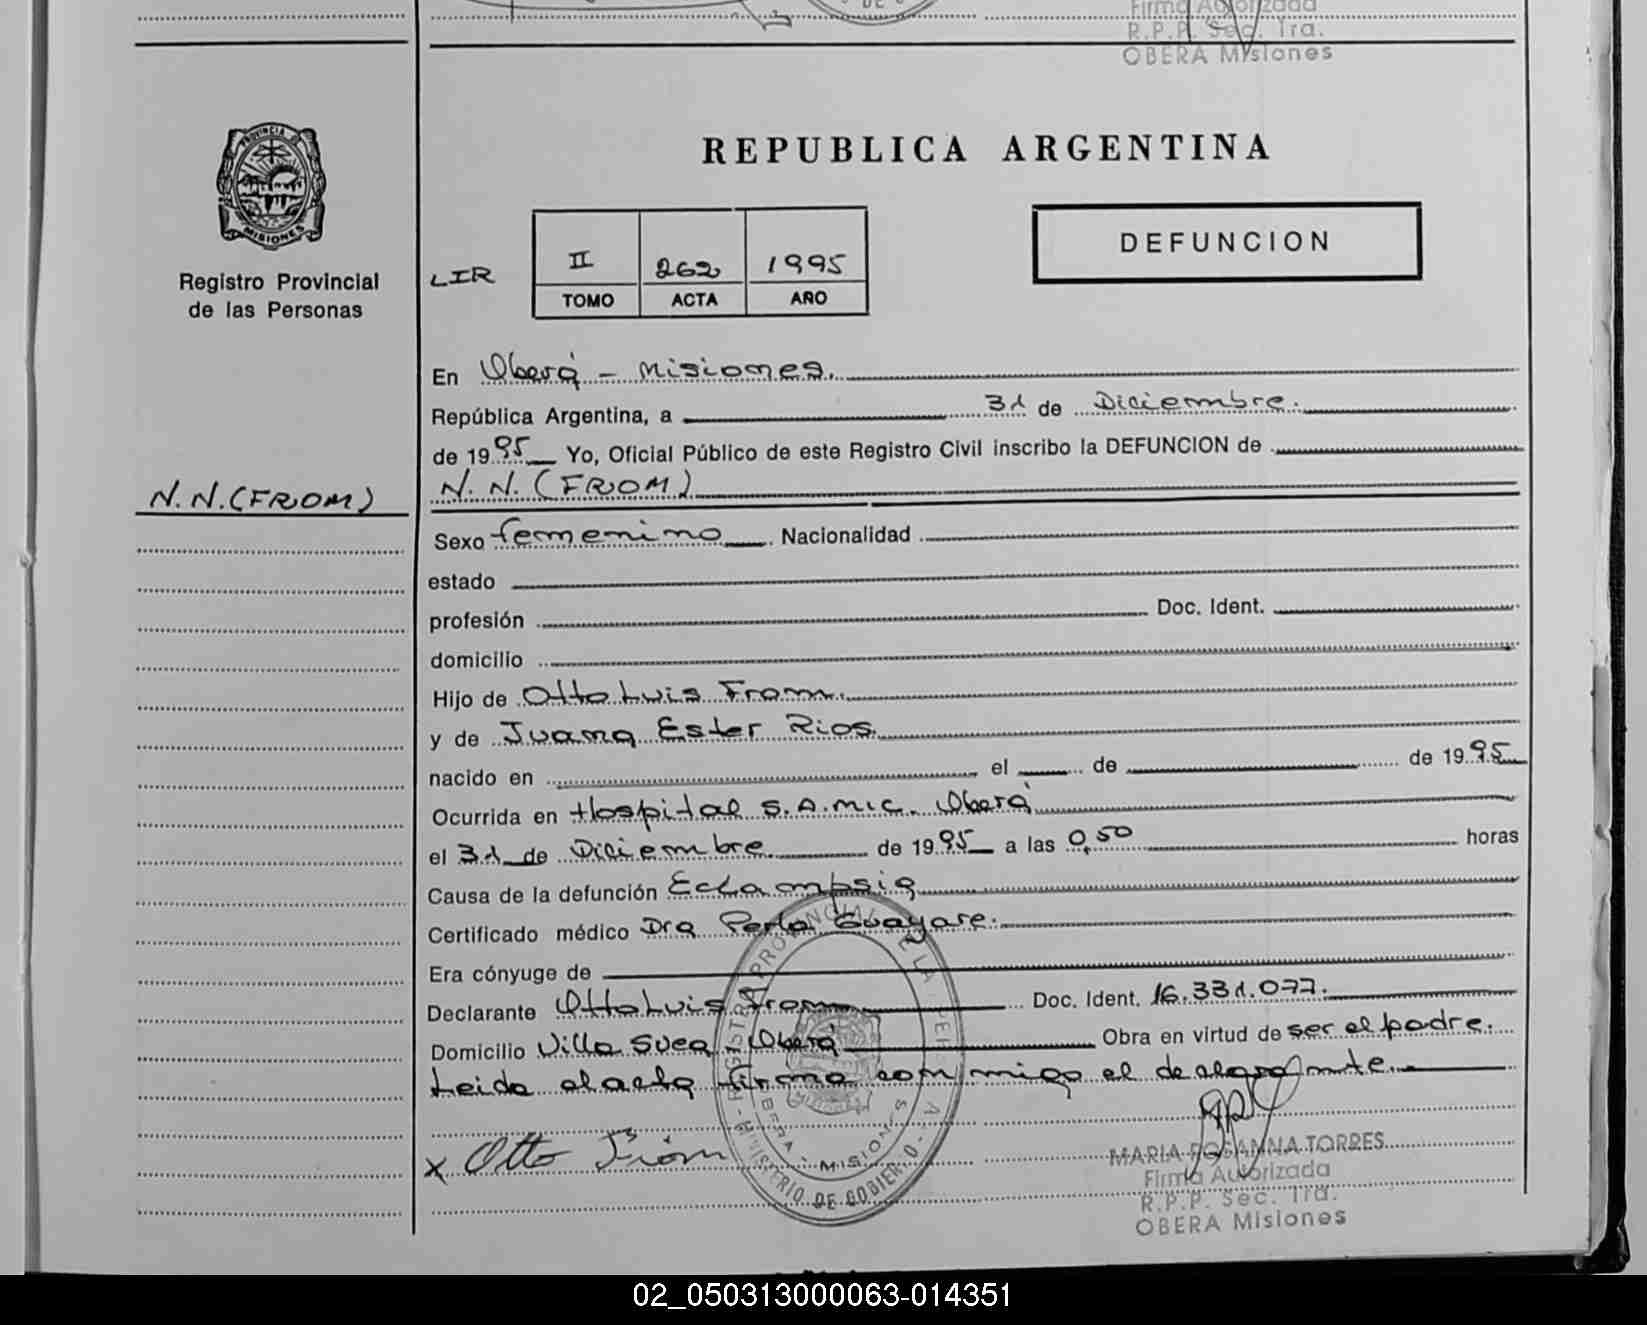 Firma Autorizada
R.P.P. Sec. 1ra.
OBERA Misiones
PROVINCIA DE
MISIONES
Registro Provincial
de las Personas
REPUBLICA ARGENTINA
DEFUNCION
LIR
II 262 1995
TOMO ACTA AÑO
En Oberá - Misiones.
República Argentina, a 31 de Diciembre.
de 1995 Yo, Oficial Público de este Registro Civil inscribo la DEFUNCION de
N.N.(FROM)
N.N.(FROM)
Sexo femenino Nacionalidad
estado
profesión Doc. Ident.
domicilio
Hijo de Otto Luis From.
y de Juana Ester Rios.
nacido en el de de 1995
Ocurrida en Hospital S.A.M.I.C. Oberá
el 31 de Diciembre de 1995 a las 0,50 horas
Causa de la defunción Eclampsia
Certificado médico Dra Perla Guayare.
Era cónyuge de
Declarante Otto Luis From Doc. Ident. 16.331.077.
Domicilio Villa Svea - Oberá Obra en virtud de ser el padre.
Leida el acta firma conmigo el declarante.
REGISTRO PROVINCIAL DE LA PERSONAS
OBERA MISIONES
MINISTERIO DE GOBIERNO
x Otto From
MARIA ROSANNA TORRES
Firma Autorizada
R.P.P. Sec. 1ra.
OBERA Misiones
02_050313000063-014351